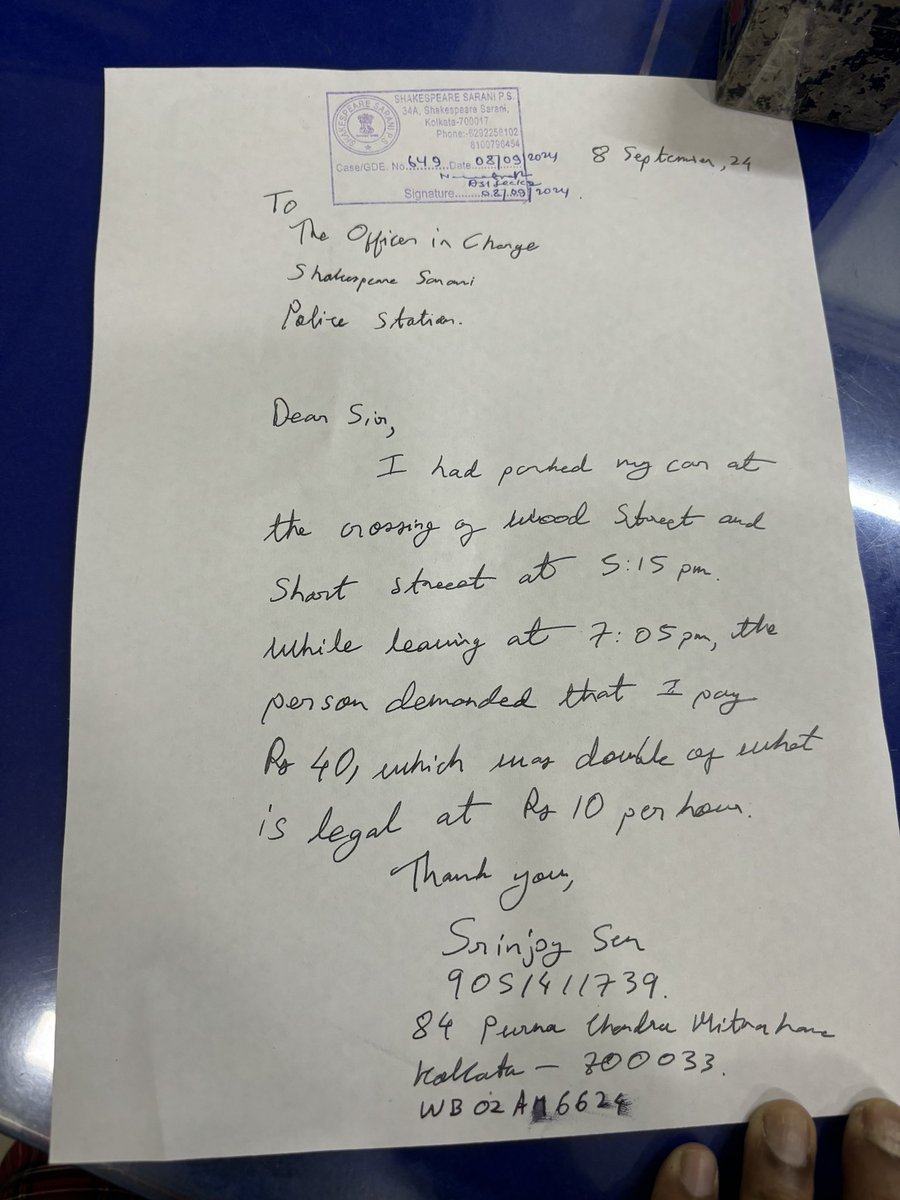 SHAKESPEARE SARANI P.S.
34A, Shakespeare Sarani,
Kolkata-700017
Phone:-6292258102
8100796454
SHAKESPEARE SARANI P.S
Case/GDE. No. 649 Date 08/09/2024
Signature 08/09/2024
8 September, 24
To
The Officer in Charge
Shakespeare Sarani
Police Station.
Dear Sir,
I had parked my car at
the crossing of Wood Street and
Short street at 5:15 pm.
While leaving at 7:05 pm, the
person demanded that I pay
Rs 40, which was double of what
is legal at Rs 10 per hour.
Thank you,
Srinjoy Sen
9051411739.
84 Purna Chandra Mitra Lane
Kolkata - 700033.
WB 02 AM 6624